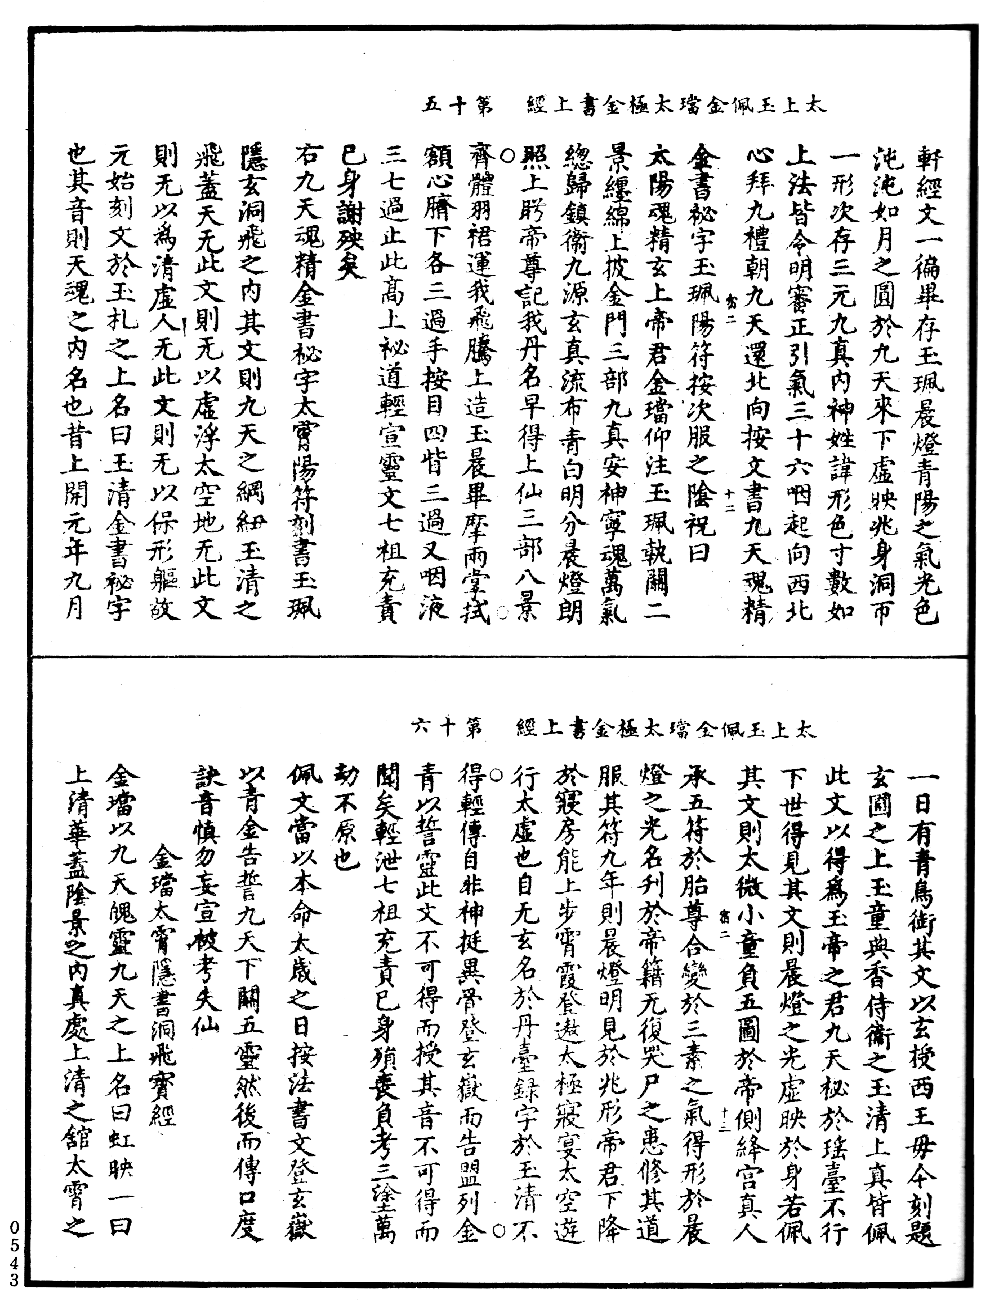 太上玉佩金璫太極金書上經　第十五
軒經文一徧畢存玉珮晨燈青陽之氣光色
沌沌如月之圓於九天來下虛映兆身洞帀
一形次存三元九真内神姓諱形色寸數如
上法皆令明審正引氣三十六咽起向西北
心拜九禮朝九天還北向按文書九天魂精
金書祕字玉珮陽符按次服之陰祝曰
太陽魂精玄上帝君金璫仰注玉珮執關二
景纏綿上披金門三部九真安神寧魂萬氣
總歸鎮衛九源玄真流布青白明分晨燈朗
照上眄帝尊記我丹名早得上仙三部八景
齊體羽裙運我飛騰上造玉晨畢摩兩掌拭
額心臍下各三過手按目四眥三過又咽液
三七過止此高上祕道輕宣靈文七祖充責
已身謝殃矣
右九天魂精金書祕字太霄陽符刻書玉珮
隱玄洞飛之内其文則九天之綱紐玉清之
飛蓋天无此文則无以虛浮太空地无此文
則无以爲清虛人无此文則无以保形軀故
元始刻文於玉札之上名曰玉清金書祕字
也其音則天魂之内名也昔上開元年九月
太上玉佩金璫太極金書上經　第十六
一日有青鳥銜其文以玄授西王母今刻題
玄圃之上玉童典香侍衛之玉清上真皆佩
此文以得爲玉帝之君九天秘於瑶臺不行
下世得見其文則晨燈之光虛映於身若佩
其文則太微小童負五圖於帝側絳宮真人
承五符於胎尊合變於三素之氣得形於晨
燈之光名刋於帝籍无復哭尸之患修其道
服其符九年則晨燈明見於兆形帝君下降
於寢房能上步霄霞登遨太極寢宴太空遊
行太虛也自无玄名於丹臺録字於玉清不
得輕傳自非神挺異骨登玄嶽而告盟列金
青以誓靈此文不可得而授其音不可得而
聞矣輕泄七祖充責已身殞喪負考三塗萬
劫不原也
佩文當以本命太歲之日按法書文登玄嶽
以青金告誓九天下關五靈然後而傳口度
訣音慎勿妄宣被考失仙
金璫太霄隱書洞飛寳經
金璫以九天魄靈九天之上名曰虹映一曰
上清華蓋陰景之内真處上清之舘太霄之
0543